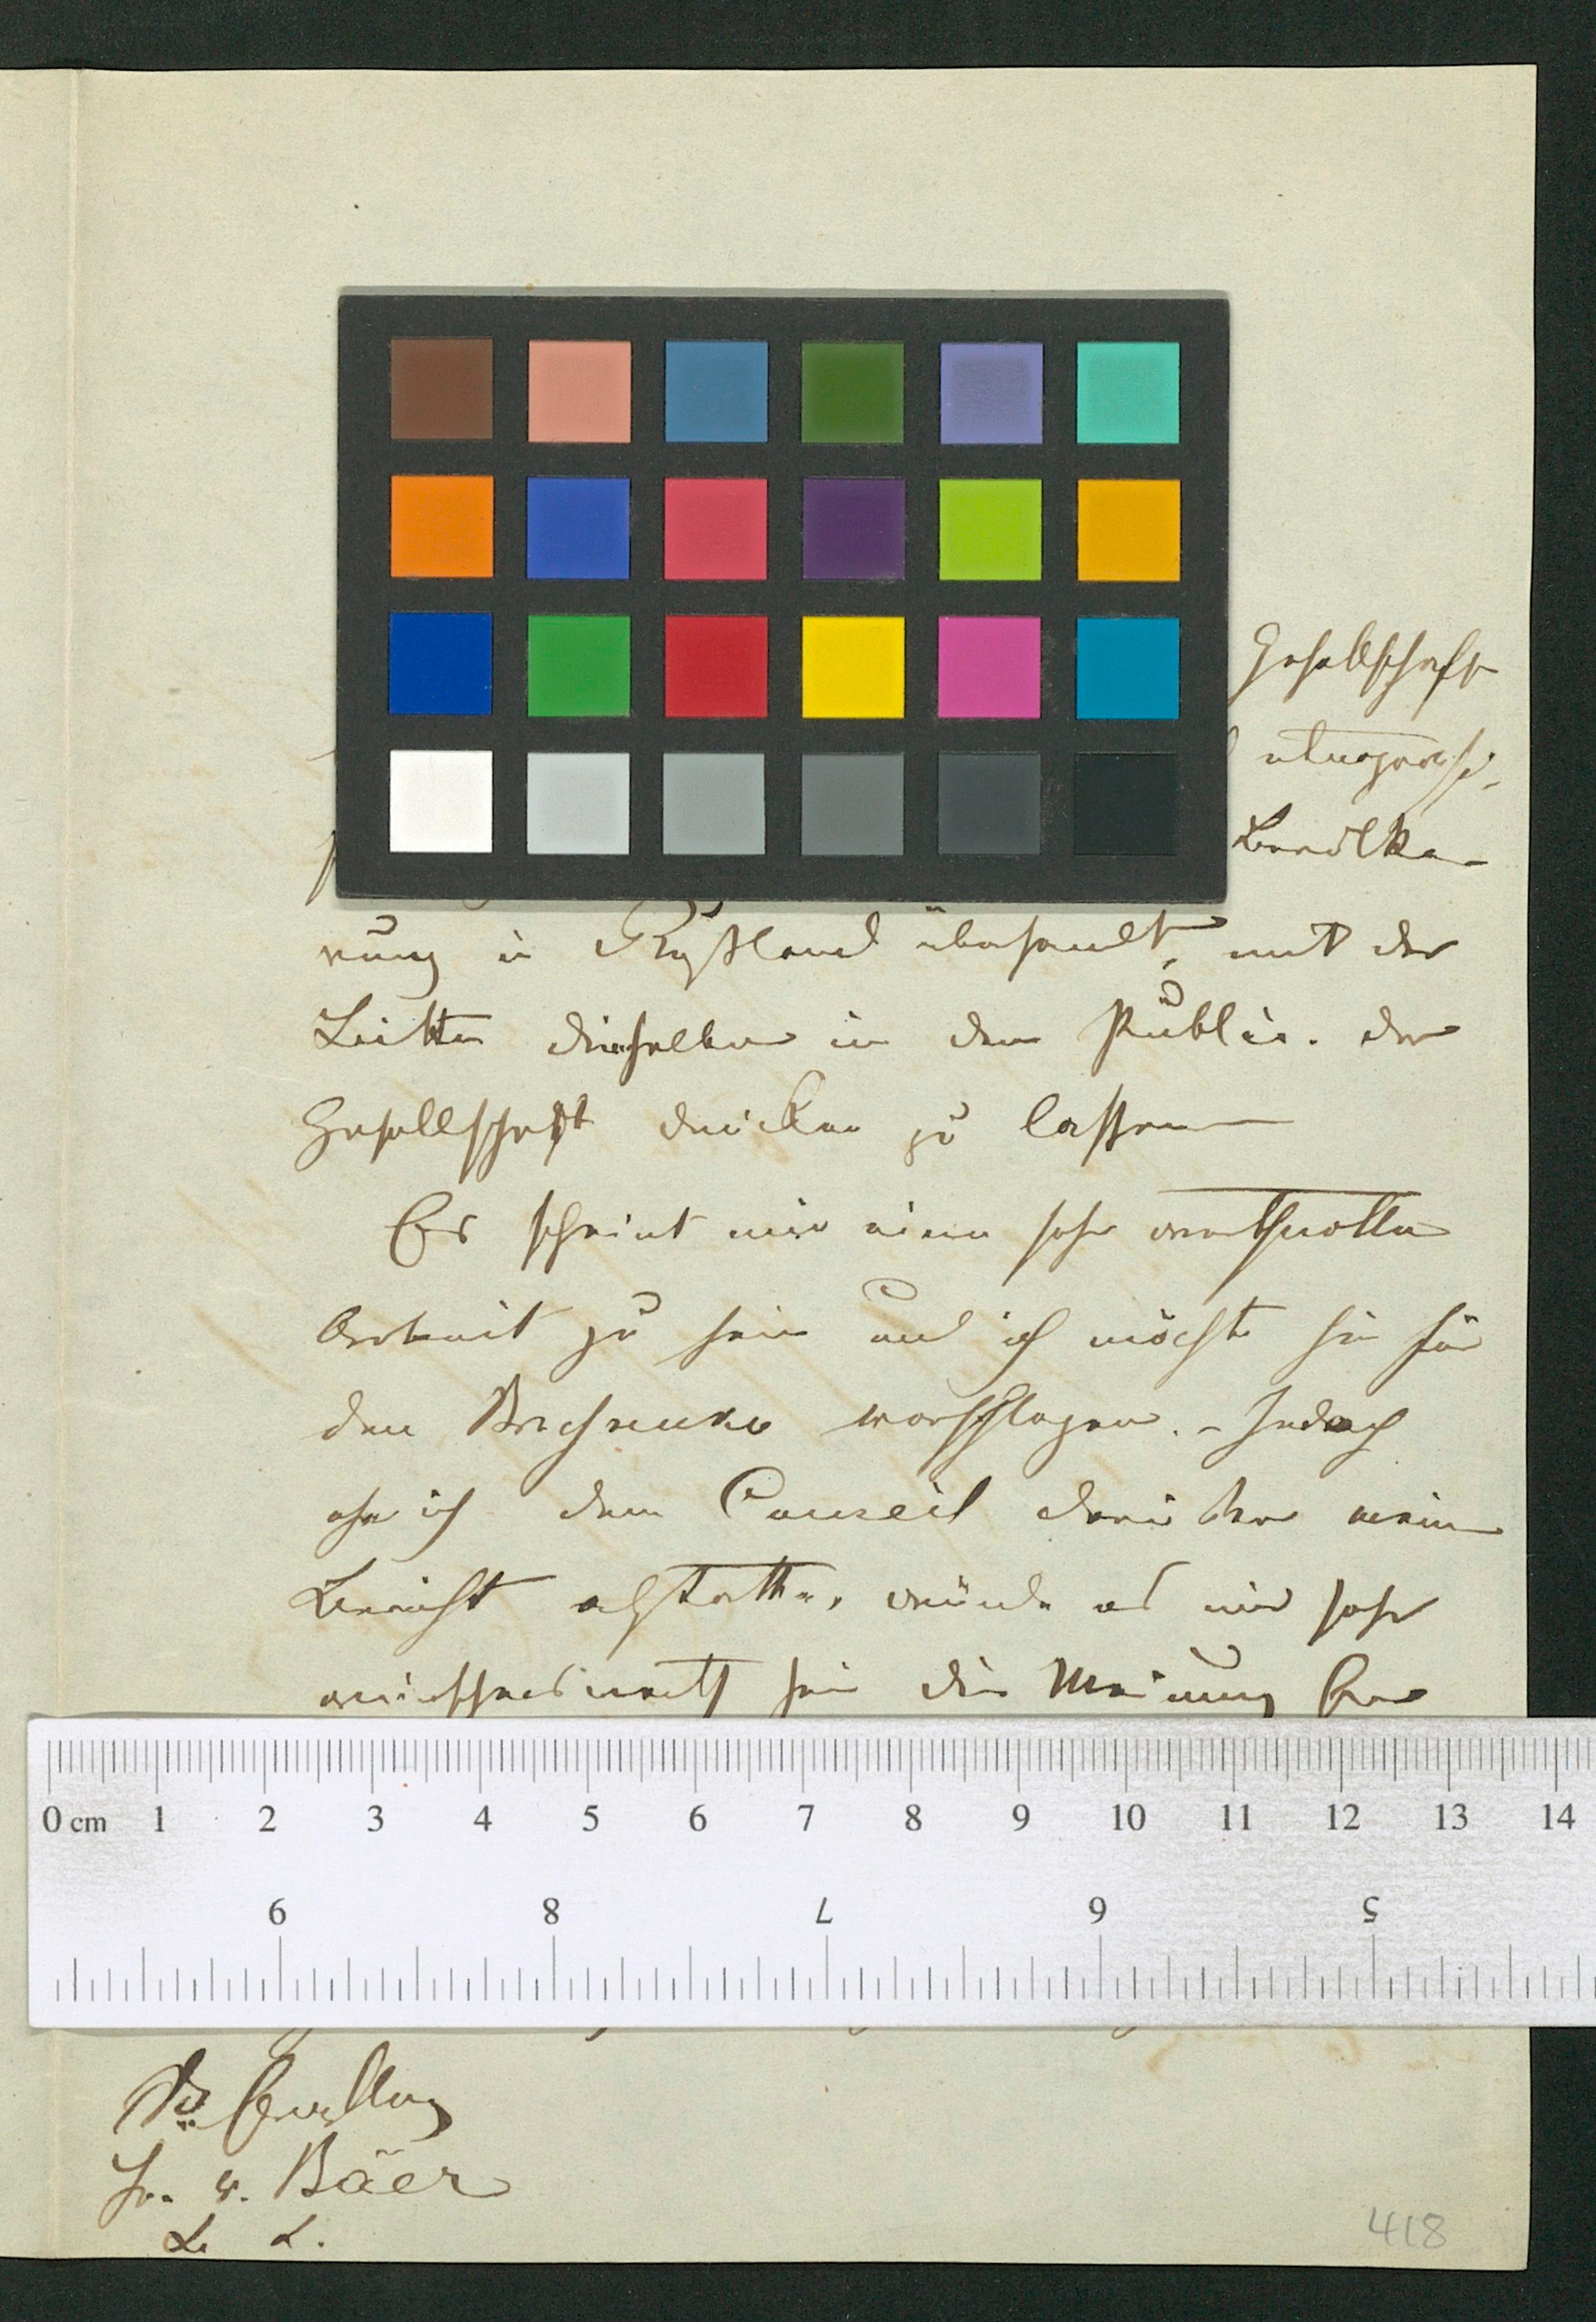 Gesellschaft
Bevölke-
rung in Rußland übersandt, mit der
Bitte dieselbe in den Public. der
Gesellschaft drucken zu lassen
Es scheint mir eine sehr werthvolle
Arbeit zu sein und ich möchte sie für
den vorschlagen. - Jedoch
ehe ich dem Conseil darüber meinen
Bericht abstatte, würde es mir sehr
wünschenswerth sein die Meinung Ew
0 cm 1 2 3 4 5 6 7 8 9 10 11 12 13 14
9 8 7 6 5
v. Bäer
418